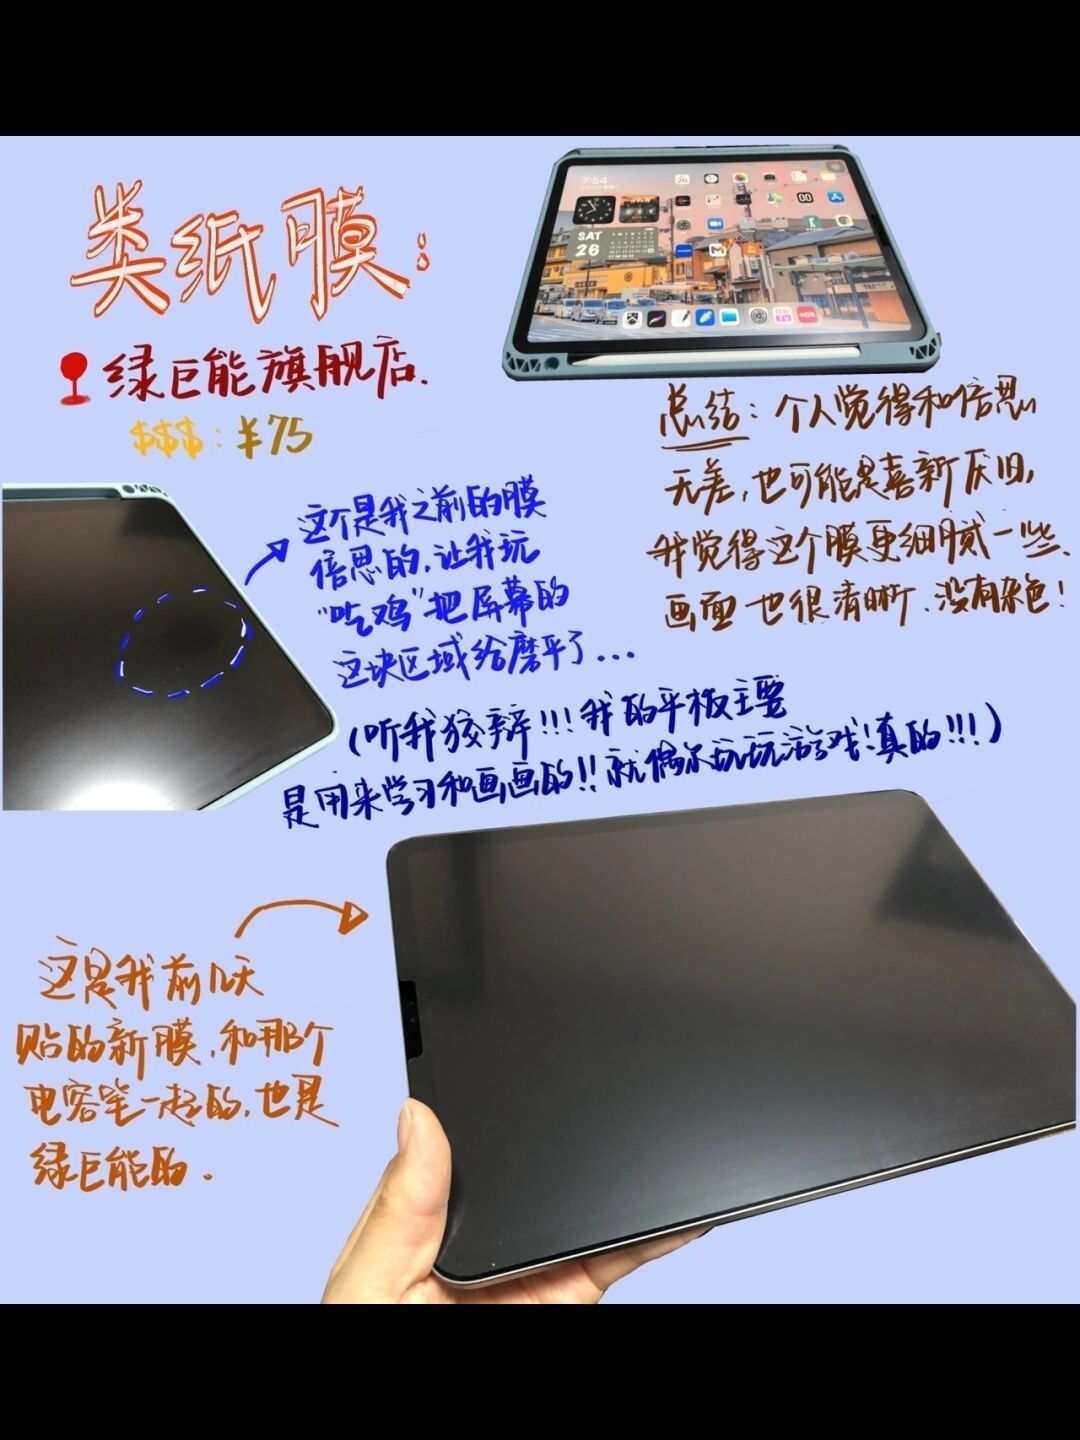 类纸膜：
绿巨能旗舰店.
$$$：¥75
7:54
SAT
26
总结：个人觉得和倍思
无差,也可能是喜新厌旧,
我觉得这个膜更细腻一些、
画面也很清晰、没有杂色!
这个是我之前的膜
倍思的,让我玩
"吃鸡"把屏幕的
这块区域给磨平了...
(听我狡辩!!!我的平板主要
是用来学习和画画的!!就偶尔玩玩游戏!真的!!!)
这是我前几天
贴的新膜,和那个
电容笔一起的,也是
绿巨能的.